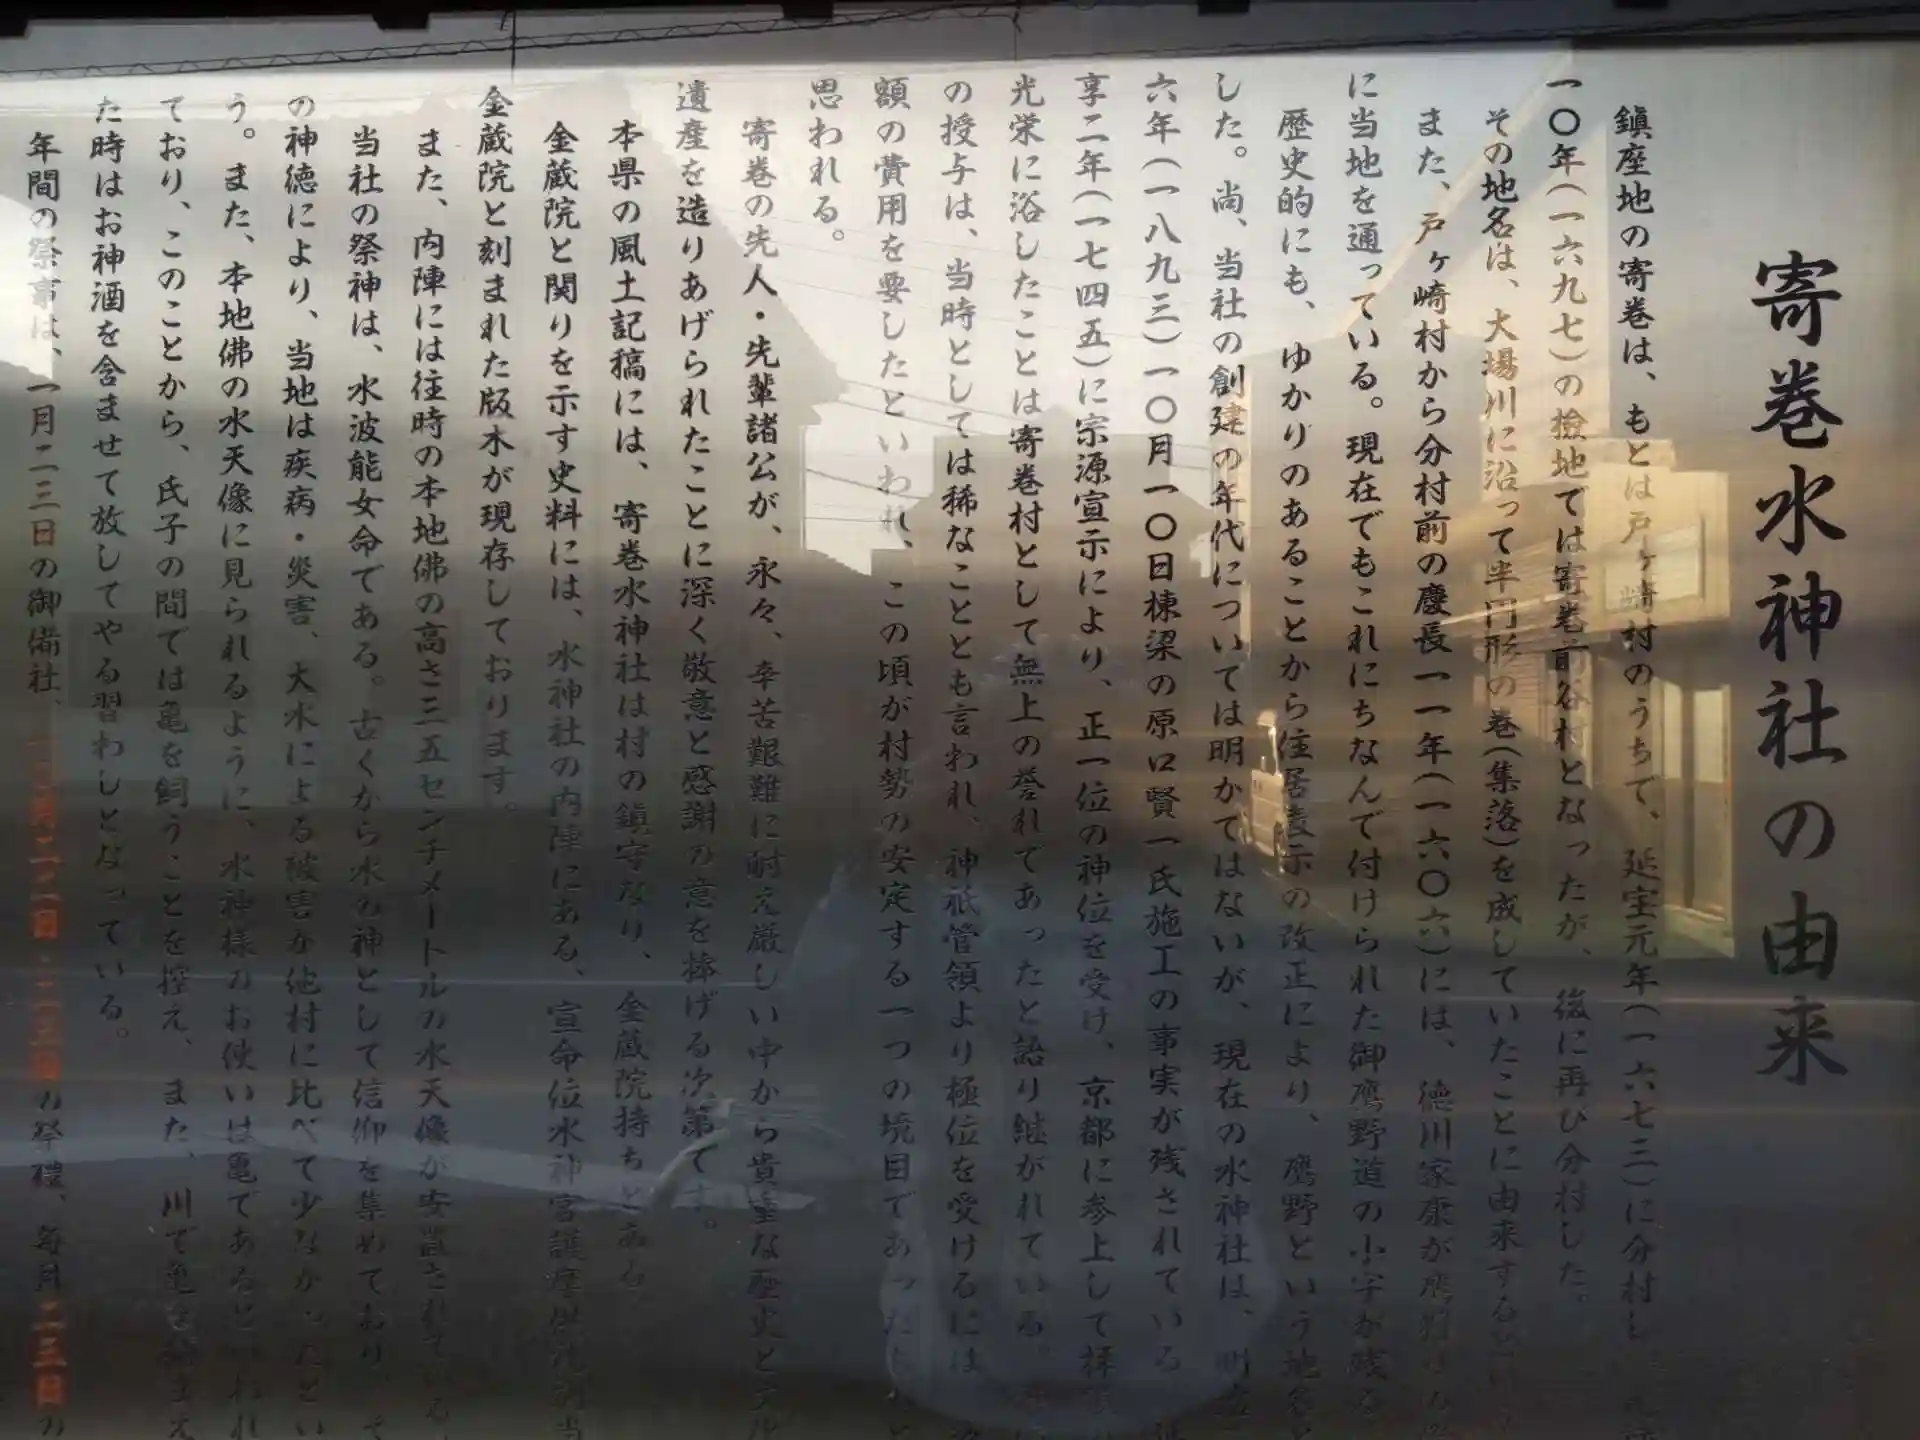 寄巻水神社の由来
鎮座地の寄巻は、もとは戸ヶ崎村のうちで、延宝元年(一六七三)に分村し
一〇年(一六九七)の検地では寄巻前谷村となったが、後に再び分村した。
その地名は、大場川に沿って半円形の巻(集落)を成していたことに由来する
また、戸ヶ崎村から分村前の慶長一一年(一六〇六)には、徳川家康が
に当地を通っている。現在でもこれにちなんで付けられた御鷹野道の小字が残る
歴史的にも、ゆかりのあることから住居表示の改正により、鷹野という地名と
した。尚、当社の創建の年代については明かではないが、現在の水神社は、明治
六年(一八九三)一〇月一〇日棟梁の原口賢一氏施工の事実が残されている
享二年(一七四五)に宗源宣示により、正一位の神位を受け、京都に参上して拝
光栄に浴したことは寄巻村として無上の誉れであったと語り継がれている。
の授与は、当時としては稀なこととも言われ、神祇管領より極位を受けるには
額の費用を要したといわれ、この頃が村勢の安定する一つの境目であった
思われる。
寄巻の先人・先輩諸公が、永々、辛苦艱難に耐え厳しい中から貴重な歴史と
遺産を造りあげられたことに深く敬意と感謝の意を捧げる次第です。
本県の風土記稿には、寄巻水神社は村の鎮守なり、金蔵院持ちとある
金蔵院と関りを示す史料には、水神社の内陣にある、宣命位水神宮護摩供
金蔵院と刻まれた版木が現存しております。
また、内陣には往時の本地佛の高さ三五センチメートルの水天像が安置されている
当社の祭神は、水波能女命である。古くから水の神として信仰を集めており、
の神徳により、当地は疾病・災害、大水による被害が他村に比べて少なかったとい
う。また、本地佛の水天像に見られるように、水神様のお使いは亀であるといわれ
ており、このことから、氏子の間では亀を飼うことを控え、また、川で亀を
た時はお神酒を含ませて放してやる習わしとなっている。
年間の祭事は、一月二三日の御備社、月二二日・二三日の祭礼、毎月二三日の